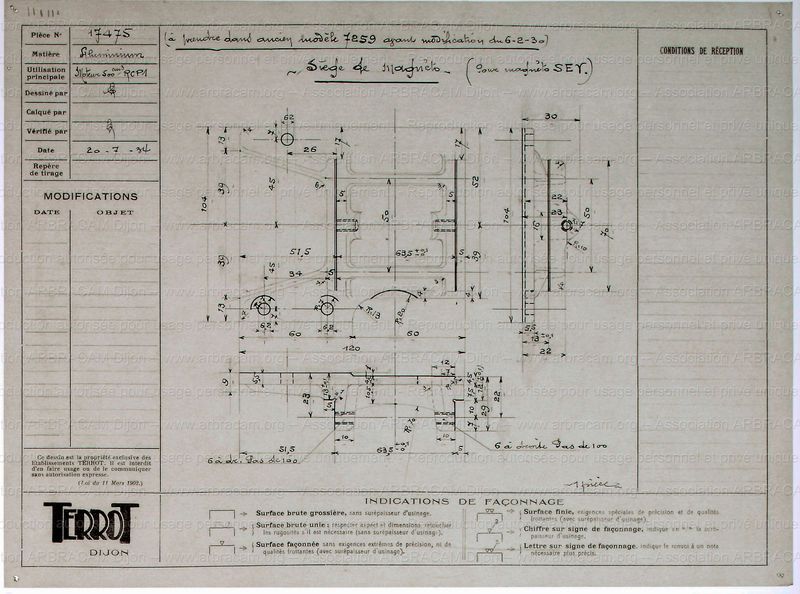 Pièce N° 17475
Matière Aluminium
Utilisation principale Moteur 500 cm³ RCP1
Dessiné par
Calqué par
Vérifié par
Date 20-7-34
Repère de tirage
MODIFICATIONS
DATE OBJET
(à prendre dans ancien modèle 7259 avant modification du 6-2-30)
Siège de Magnéto (Pour magnéto SEV.)
CONDITIONS DE RÉCEPTION
62
26
104
13
39
39
13
45
45
51,5
34
63,5
50
52
39
60
60
120
R.13
R.20
6,2
6,2
30
104
22
23
16
50
70
R.10
5,5
22
9
5,5
23
12
22
29
10
10
R.70
51,5
63,5
6 à dr. Pas de 100
6 à droite Pas de 100
1 pièce
Ce dessin est la propriété exclusive des
Etablissements TERROT. Il est interdit
d'en faire usage ou de le communiquer
sans autorisation expresse.
(Loi du 11 Mars 1902.)
TERROT
DIJON
INDICATIONS DE FAÇONNAGE
Surface brute grossière, sans surépaisseur d'usinage.
Surface brute unie; respecter aspect et dimensions, retoucher
les rugosités s'il est nécessaire (sans surépaisseur d'usinage).
Surface façonnée sans exigences extrêmes de précision, ni de
qualités frottantes (avec surépaisseur d'usinage).
Surface finie, exigences spéciales de précision et de qualités
frottantes (avec surépaisseur d'usinage).
Chiffre sur signe de façonnage, indique en m/m la surépaisseur d'usinage.
Lettre sur signe de façonnage, indique le renvoi à un note
nécessaire plus précis.
www.arbracam.org – Association ARBRACAM Dijon – Reproduction autorisée uniquement pour usage personnel et privé